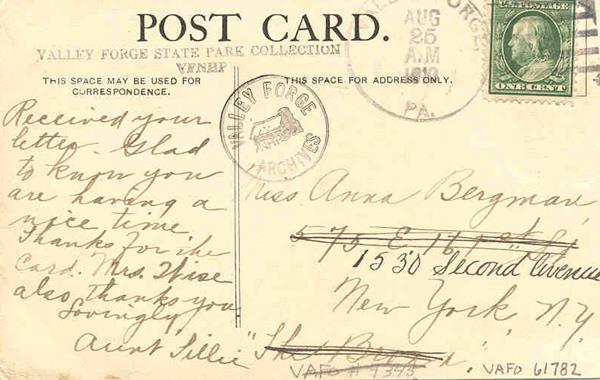 POST CARD.
VALLEY FORGE STATE PARK COLLECTION
VFNHP
THIS SPACE MAY BE USED FOR
CORRESPONDENCE.
THIS SPACE FOR ADDRESS ONLY.
VALLEY FORGE
AUG
25
A.M
1910
PA.
ONE CENT
VALLEY FORGE
ARCHIVES
Received your
letter. Glad
to know you
are having a
nice time
Thanks for the
Card. Mrs. Wise
also thanks you
Lovingly
Aunt Tillie
Miss Anna Bergman
575 E 161st St
1530 Second Avenue
New York N.Y.
"The Bronx"
VAFO # 7343
VAFO 61782